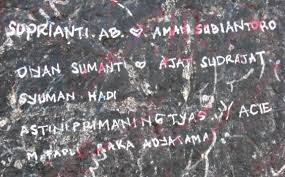 SUPRIANTI. AB. ♡ AMAN SUBIANTORO
DIYAN SUMANTI ♡ AJAT SUDRAJAT
SYUMAN HADI
ASTINI PRIMANINGTYAS // ACIE
RAKA ADYATAMA